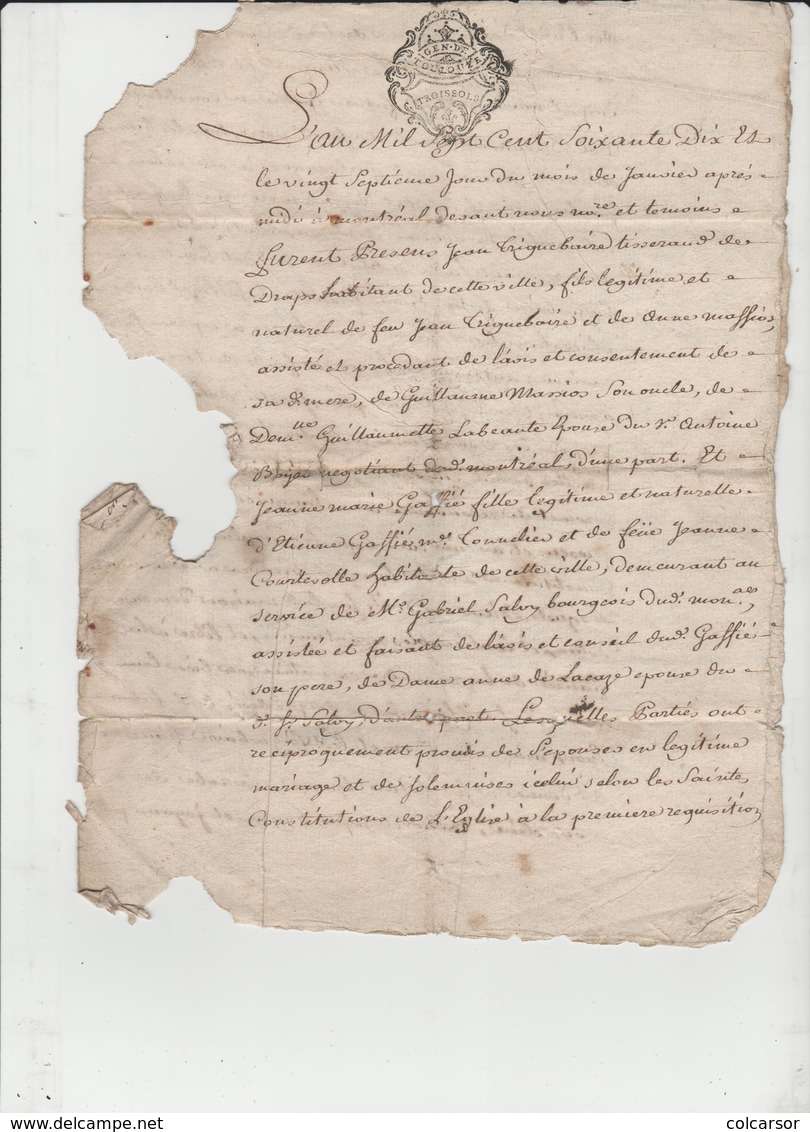 GEN. DE
TOULOUZE
TROIS SOLS
L'an Mil Sept Cent Soixante Dix Et
le vingt Septieme Jour du mois de Janvier aprés
midi à montréal devant nous no.re et temoins
furent Presens Jean Triguebaire tisserand de
Draps habitant de cette ville, fils legitime et
naturel de feu Jean Triguebaire et de Anne Massios,
assisté et procedant de l'avis et consentement de
sa d. mere, de Guillaume Massios Son oncle, de
Dem.lle Guillaumette Labeaute Epouse du S.r Antoine
Boyer negotiant dud. montréal, d'une part. Et
Jeanne marie Gaffié fille legitime et naturelle
d'Etienne Gaffié, m.e Tonnelier et de feüe Jeanne
Courtesolle habitante de cette ville, demeurant au
service de M.r Gabriel Salvy bourgeois dud.
assistée et faisant de l'avis et conseil dud. Gaffié
son pere, de Dame anne de Lacaze epouse du
d. Sr. Salvy, d'autre part. Lesquelles Parties ont
reciproquement promis de S'epouser en legitime
mariage et de solemniser icelui selon les Saintes
Constitutions de L'Eglise à la premiere requisition
colcarsor